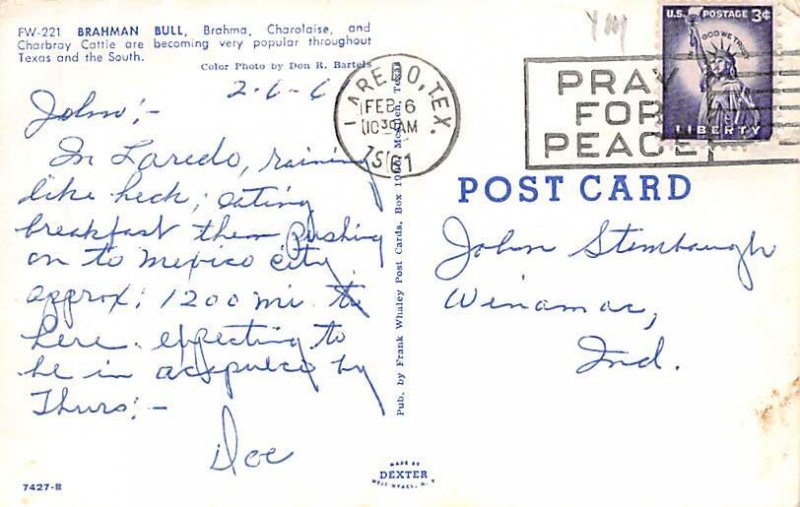 FW-221 BRAHMAN BULL, Brahma, Charolaise, and
Charbray Cattle are becoming very popular throughout
Texas and the South.
Color Photo by Don R. Bartels
2-6-6
John;-
In Laredo, raining
like heck; eating
breakfast then pushing
on to Mexico City
approx; 1200 mi. to
here. expecting to
be in acapulco by
Thurs;-
Doc
7427-B
Pub. by Frank Whaley Post Cards, Box 1960, McAllen, Texas
MADE BY
DEXTER
WEST NYACK, N. Y.
LAREDO, TEX.
FEB 6
1030AM
1961
PRAY
FOR
PEACE
U.S. POSTAGE 3¢
IN GOD WE TRUST
LIBERTY
POST CARD
John Stembaugh
Winamac,
Ind.